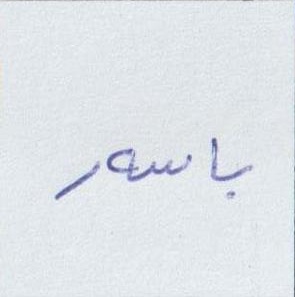 باسمر